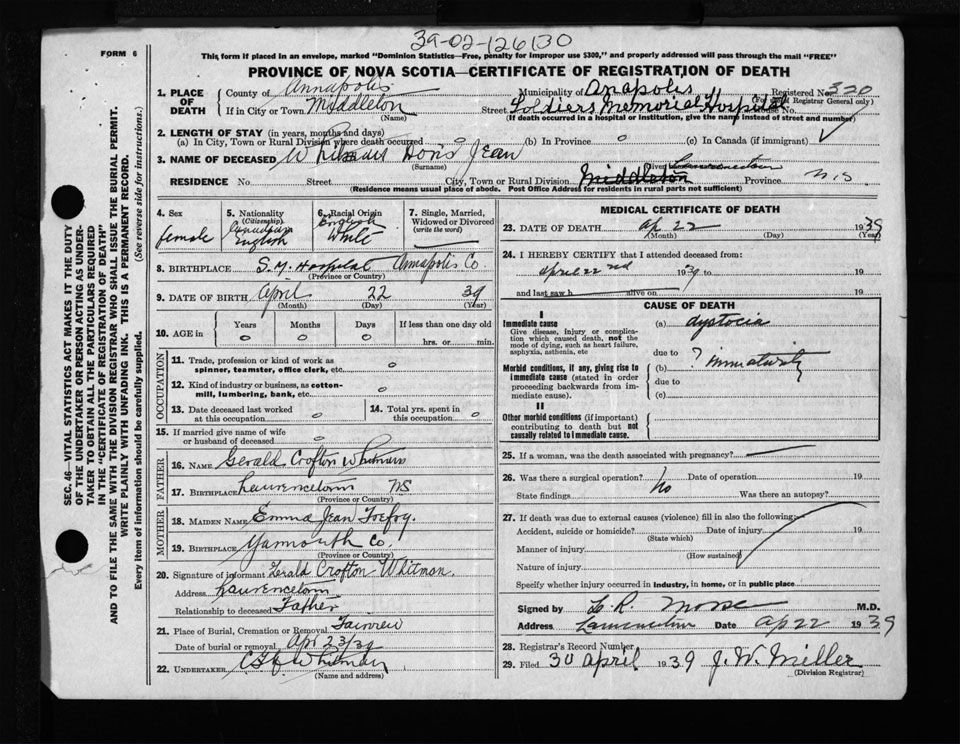 39-02-126130
FORM 6
This form if placed in an envelope, marked "Dominion Statistics—Free, penalty for improper use $300," and properly addressed will pass through the mail "FREE"
PROVINCE OF NOVA SCOTIA—CERTIFICATE OF REGISTRATION OF DEATH
1. PLACE OF DEATH
County of Annapolis Municipality of Anapolis Registered No. 320
(For use of Registrar General only)
If in City or Town Middleton Street Soldiers Memorial Hospital House No.
(Name) (If death occurred in a hospital or institution, give the name instead of street and number)
2. LENGTH OF STAY (in years, months and days)
(a) In City, Town or Rural Division where death occurred 0 (b) In Province 0 (c) In Canada (if immigrant)
3. NAME OF DECEASED Jean
(Surname)
RESIDENCE No. Street City, Town or Rural Division Middleton Province N.S
(Residence means usual place of abode. Post Office Address for residents in rural parts not sufficient)
4. Sex
female
5. Nationality
(Citizenship)
Canadian
English
6. Racial Origin
English
White
7. Single, Married, Widowed or Divorced
(write the word)
8. BIRTHPLACE S. M. Hospital Annapolis Co
(Province or Country)
9. DATE OF BIRTH April 22 39
(Month) (Day) (Year)
10. AGE in
Years Months Days If less than one day old
0 0 0 hrs. or min.
OCCUPATION
11. Trade, profession or kind of work as spinner, teamster, office clerk, etc. 0
12. Kind of industry or business, as cotton-mill, lumbering, bank, etc. 0
13. Date deceased last worked at this occupation 0
14. Total yrs. spent in this occupation 0
15. If married give name of wife or husband of deceased 0
FATHER
16. NAME Gerald Crofton Whitman
17. BIRTHPLACE Lawrencetown NS
(Province or Country)
MOTHER
18. MAIDEN NAME Emma Jean
19. BIRTHPLACE Yarmouth Co.
(Province or Country)
20. Signature of informant Gerald Crofton Whitman.
Address Lawrencetown
Relationship to deceased Father
21. Place of Burial, Cremation or Removal Fairview
Date of burial or removal Apr 23/39
22. UNDERTAKER Whitman
(Name and address)
MEDICAL CERTIFICATE OF DEATH
23. DATE OF DEATH Ap 22 1939
(Month) (Day) (Year)
24. I HEREBY CERTIFY that I attended deceased from:
April 22nd 1939 to 19
and last saw h alive on 19
CAUSE OF DEATH
I
Immediate cause
Give disease, injury or complication which caused death, not the mode of dying, such as heart failure, asphyxia, asthenia, etc
(a) dystocia
due to
Morbid conditions, if any, giving rise to immediate cause (stated in order proceeding backwards from immediate cause).
(b) ? immaturity
due to
(c)
II
Other morbid conditions (if important) contributing to death but not causally related to immediate cause.
25. If a woman, was the death associated with pregnancy?
26. Was there a surgical operation? No Date of operation 19
State findings Was there an autopsy?
27. If death was due to external causes (violence) fill in also the following:
Accident, suicide or homicide? Date of injury 19
(State which)
Manner of injury
(How sustained)
Nature of injury
Specify whether injury occurred in industry, in home, or in public place
Signed by L. R. Morse M.D.
Address Lawrencetown Date Ap 22 1939
28. Registrar's Record Number
29. Filed 30 April 1939 J. W. Miller
(Division Registrar)
SEC. 46—VITAL STATISTICS ACT MAKES IT THE DUTY
OF THE UNDERTAKER OR PERSON ACTING AS UNDERTAKER TO OBTAIN ALL THE PARTICULARS REQUIRED
IN THE "CERTIFICATE OF REGISTRATION OF DEATH"
AND TO FILE THE SAME WITH THE DIVISION REGISTRAR WHO SHALL ISSUE THE BURIAL PERMIT.
WRITE PLAINLY WITH UNFADING INK. THIS IS A PERMANENT RECORD.
Every item of information should be carefully supplied. (See reverse side for instructions)